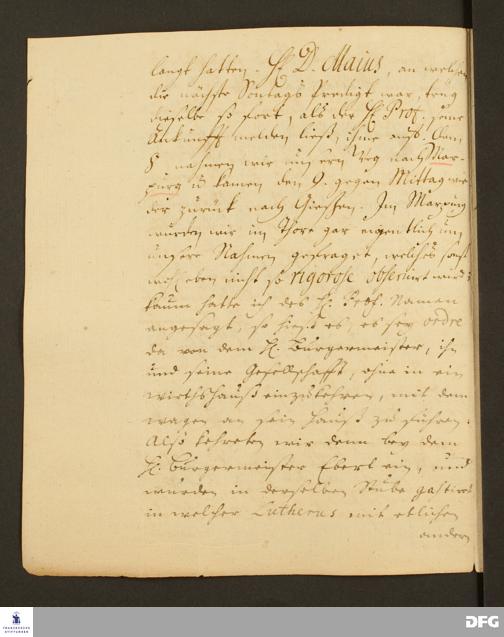 langt hatten. H. D. Maius, an welchen
die nächste Sontags Predigt war, trug
dieselbe so fort, als der H. Prof. seine
Ankunfft melden ließ, ihme auf. Den
8. nahmen wir unsern Weg nach Mar-
purg u. kamen den 9. gegen Mittag wie
der zurück nach Giessen. In Marpurg
wurden wir im Thore gar eigentlich um
unsere Nahmen gefraget, welches sonst
eben nicht so rigorose observirt wird;
kaum hatte ich des H. Prof. Namen
angesagt, so hieß es, es sey ordre
da von dem H. Bürgermeister, ihn
und seine Gesellschafft, ohne in ein
wirthshauß einzukehren, mit dem
wagen an sein Hauß zu führen.
Also kehreten wir denn bey dem
H. Bürgermeister Eberl ein, und
wurden in derselben Stube gastiret
in welcher Lutherus mit etlichen
andern
FRANCKESCHE STIFTUNGEN
DFG